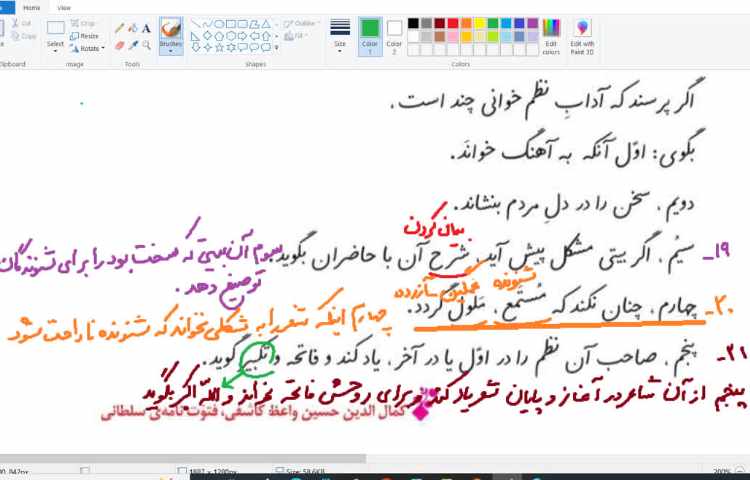 Home View
Cut
Copy
Crop
Resize
Rotate
Select
Brushes
Outline
Fill
Size
Color 1
Color 2
Edit colors
Edit with Paint 3D
Clipboard Image Tools Shapes Colors
اگر پرسند که آدابِ نظم خوانی چند است،
بگوی: اوّل آنکه به آهنگ خواند.
دویم، سخن را در دلِ مردم بنشاند.
بیان کردن
۱۹ـ سیُم، اگر بیتی مشکل پیش آید، شرح آن با حاضران بگوید.
سوم آن بیتی که سخت بود را برای شنوندگان
توضیح دهد.
شنونده غمگین، آزرده
۲۰ـ چهارم، چنان نکند که مُستَمِع، مَلول گردد.
چهارم اینکه شعر را به شکلی نخواند که شنونده ناراحت شود
۲۱ـ پنجم، صاحب آن نظم را در اوّل یا در آخر، یاد کند و فاتحه و تکبیر گوید.
پنجم از آن شاعر در آغاز و پایان شعر یاد کند و برای روحش فاتحه بخواند و الله اکبر بگوید
کمال الدین حسین واعظ کاشفی، فتوت نامه‌ی سلطانی
1887 × 1280px Size: 58.6KB 200%